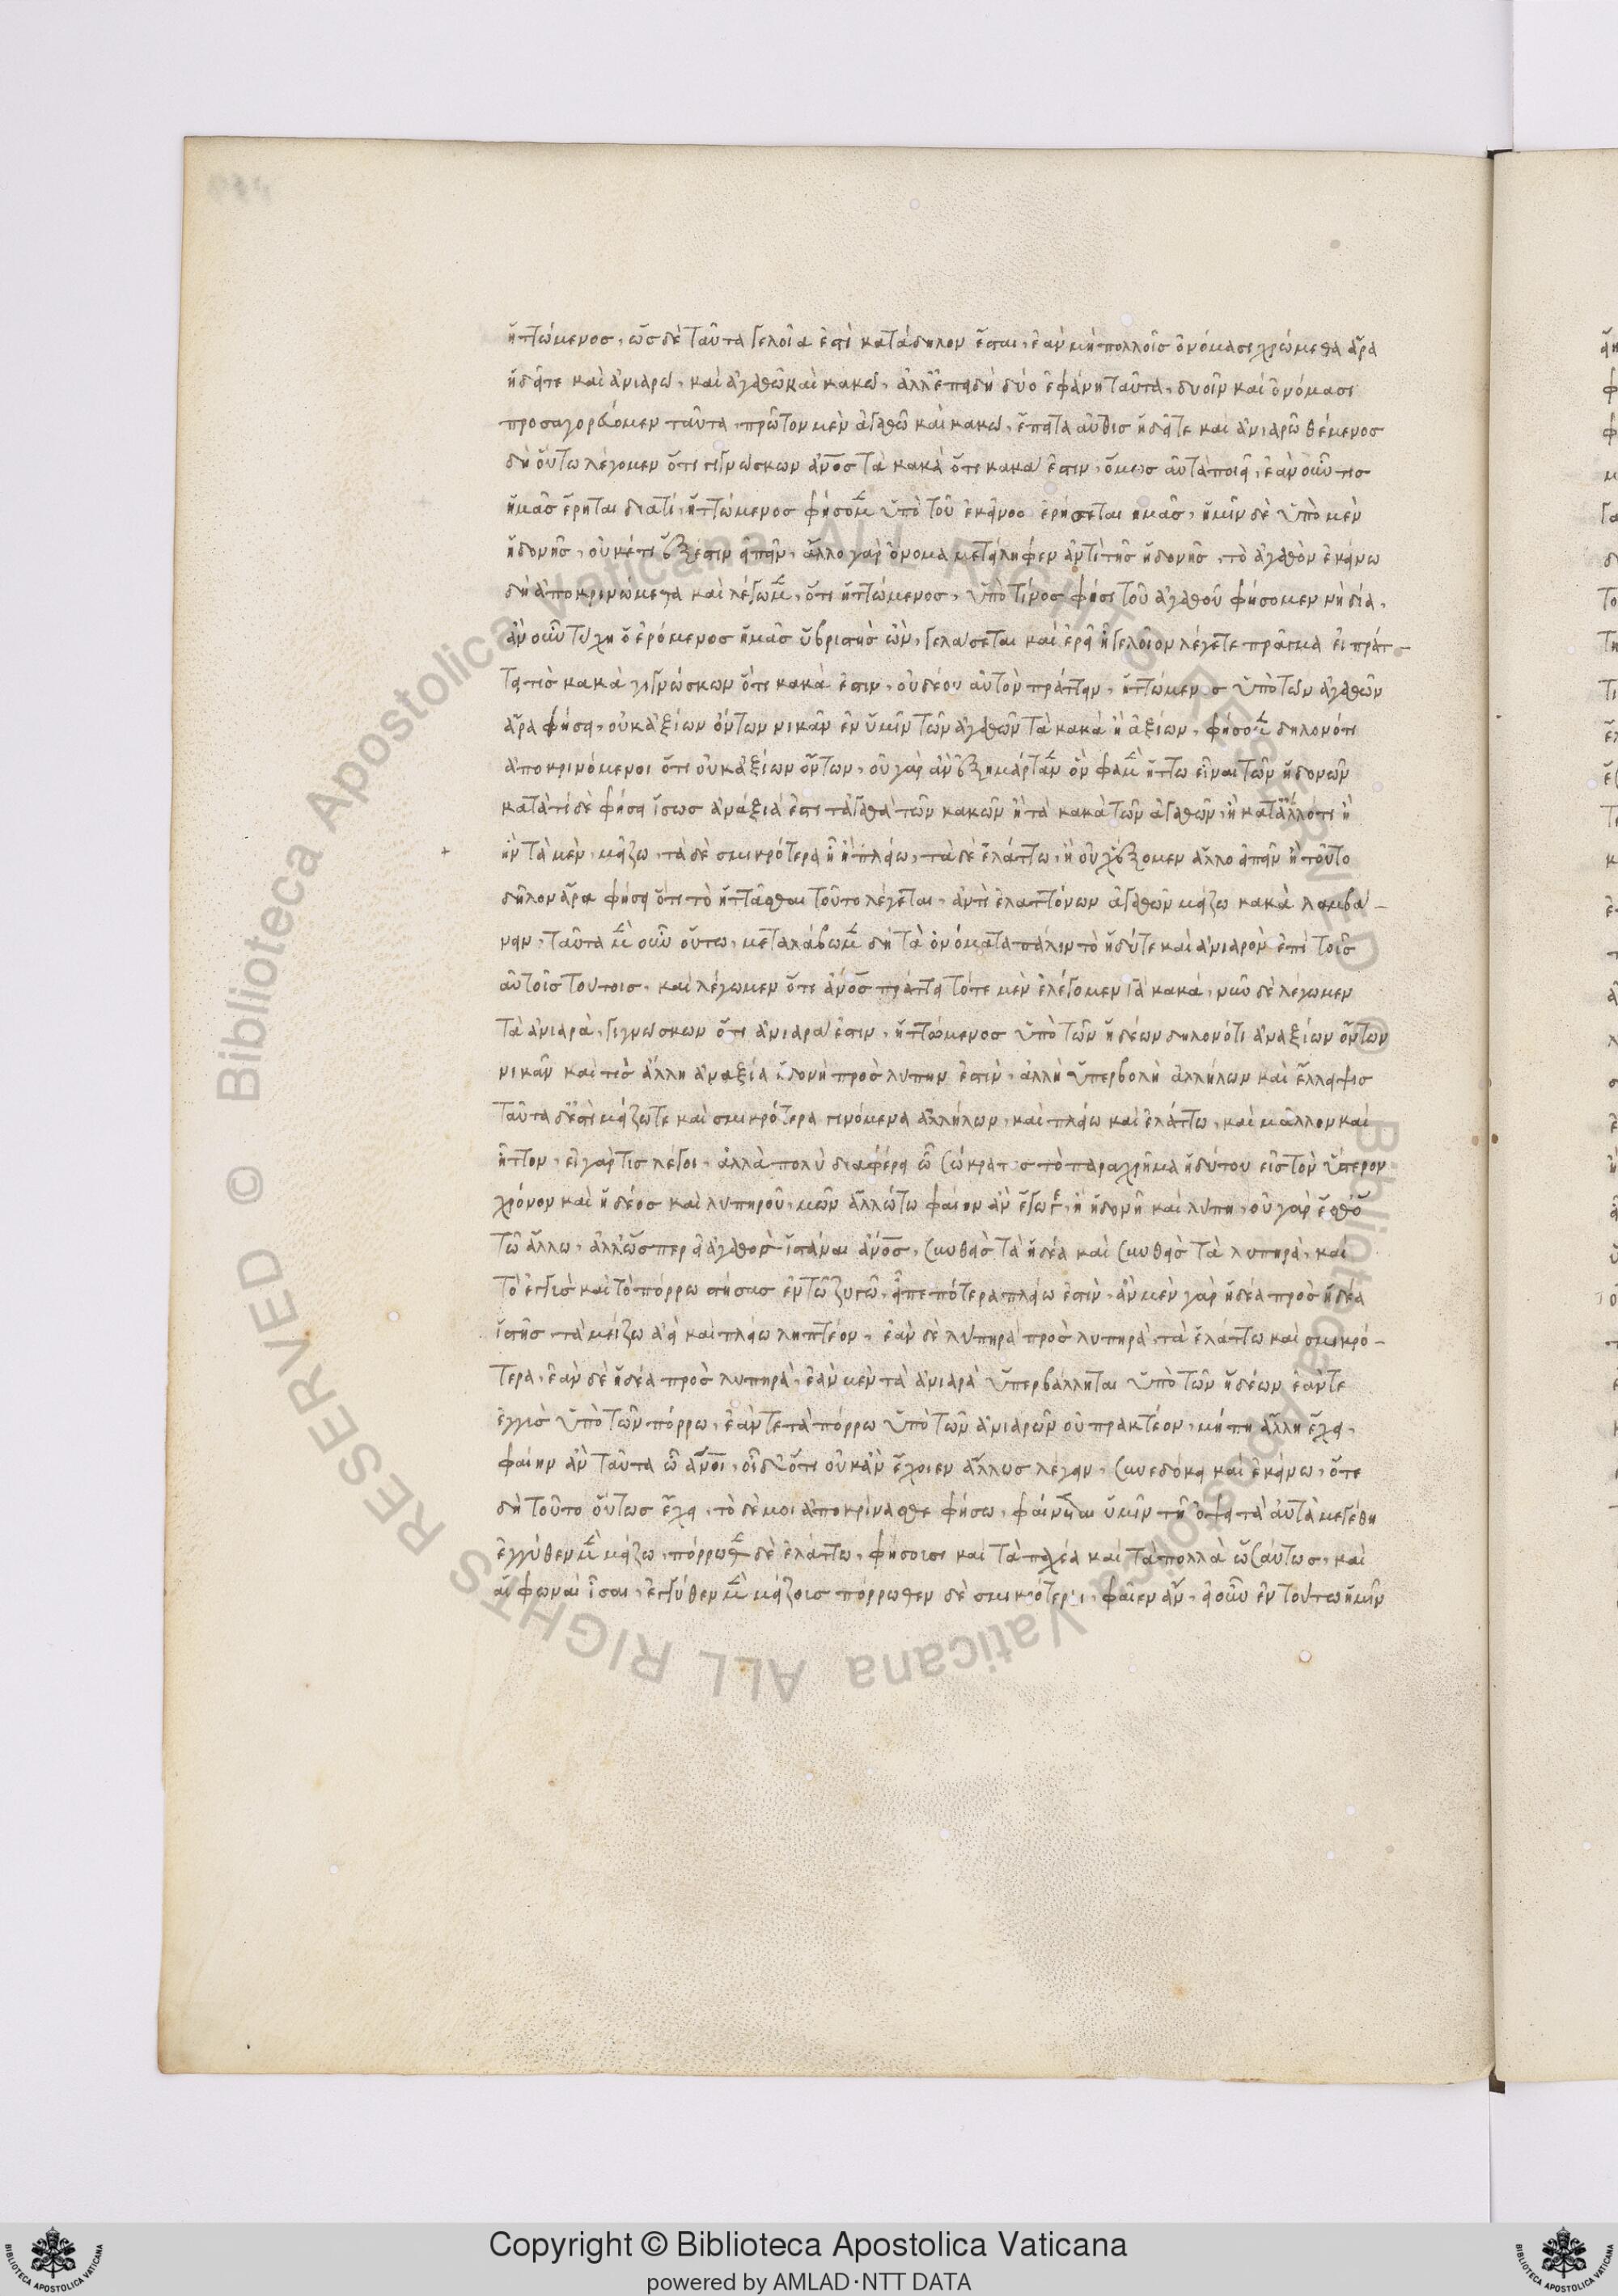 ἡττώμενος, ὡς δὲ ταῦτα γελοῖα ἐστὶ κατάδηλον ἔσται, ἐὰν μὴ πολλοῖς ὀνόμασι χρώμεθα ἅρα
ἡδεῖ τε καὶ ἀνιαρῶ, καὶ ἀγαθῶ καὶ κακῶ, ἀλλ' ἐπειδὴ δύο ἐφάνη ταῦτα, δυοῖν καὶ ὀνόμασι
προσαγορεύομεν ταῦτα, πρῶτον μὲν ἀγαθῶ καὶ κακῶ, ἔπειτα αὖθις ἡδεῖ τε καὶ ἀνιαρῶ θέμενος
δὴ οὕτω λέγομεν ὅτι γιγνώσκων ἀνος τὰ κακὰ ὅτι κακά ἐστιν, ὅμως αὐτὰ ποιεῖ, ἐὰν οὖν τις
ἡμᾶς ἔρηται διατί, ἡττώμενος φήσομ ὑπὸ τοῦ ἐκεῖνος ἐρήσεται ἡμᾶς, ἡμῖν δὲ ὑπὸ μὲν
ἡδονῆς, οὐκέτι ἔξεστιν εἰπεῖν, ἄλλο γὰρ ὄνομα μετείληφεν ἀντὶ τῆς ἡδονῆς, τὸ ἀγαθὸν ἐκείνω
δὴ ἀποκρινώμεθα καὶ λέγωμ, ὅτι ἡττώμενος, ὑπὸ τίνος φήσι τοῦ ἀγαθοῦ φήσομεν νὴ δία,
ἂν οὖν τύχη ὁ ἐρόμενος ἡμᾶς ὑβριστὴς ὢν, γελάσεται καὶ ἐρεῖ ἢ γελοῖον λέγετε πρᾶγμα εἰ πράτ-
τει τὶς κακὰ γιγνώσκων ὅτι κακὰ ἐστιν, οὐ δέον αὐτὸν πράττειν, ἡττώμενος ὑπὸ τῶν ἀγαθῶν
ἆρα φήσει, οὐκ ἀξίων ὄντων νικᾶν ἐν ὑμῖν τῶν ἀγαθῶν τὰ κακὰ ἢ ἀξίων, φήσομ δηλονότι
ἀποκρινόμενοι ὅτι οὐκ ἀξίων ὄντων, οὐ γὰρ ἂν ἐξημάρταν ὃν φαμ ἥττω εἶναι τῶν ἡδονῶν
κατὰ τί δὲ φήσει ἴσως ἀνάξιά ἐστι τἀγαθὰ τῶν κακῶν ἢ τὰ κακὰ τῶν ἀγαθῶν, ἢ κατ' ἄλλό τι ἢ
ἢν τὰ μὲν, μείζω, τὰ δὲ σμικρότερα ἦ ἢ πλείω, τὰ δὲ ἐλάττω, ἢ οὐχ ἕξομεν ἄλλο εἰπεῖν ἢ τοῦτο
δῆλον ἄρα φήσει ὅτι τὸ ἡττᾶσθαι τοῦτο λέγεται, ἀντὶ ἐλαττόνων ἀγαθῶν μείζω κακὰ λαμβά-
νειν, ταῦτα μ οὖν οὕτω, μεταλάβωμ δὴ τὰ ὀνόματα πάλιν τὸ ἡδύ τε καὶ ἀνιαρὸν ἐπὶ τοῖς
αὐτοῖς τούτοις, καὶ λέγωμεν ὅτι ἀνος πράττει τότε μὲν ἐλέγομεν τὰ κακά, νῦν δὲ λέγωμεν
τὰ ἀνιαρὰ, γιγνώσκων ὅτι ἀνιαρά ἐστιν, ἡττώμενος ὑπὸ τῶν ἡδέων δηλονότι ἀναξίων ὄντων
νικᾶν καὶ τὶς ἄλλη ἀναξία ἡδονὴ πρὸς λύπην ἐστὶν, ἀλλ' ἢ ὑπερβολὴ ἀλλήλων καὶ ἔλλειψις
ταῦτα δ' ἐστὶ μείζω τε καὶ σμικρότερα γινόμενα ἀλλήλων, καὶ πλείω καὶ ἐλάττω, καὶ μᾶλλον καὶ
ἧττον, εἰ γάρ τις λέγοι, ἀλλὰ πολὺ διαφέρει ὦ σώκρατες τὸ παραχρῆμα ἡδὺ τοῦ εἰς τὸν ὕστερον
χρόνον καὶ ἡδέος καὶ λυπηροῦ, μῶν ἄλλώ τω φαίην ἂν ἔγωγε, ἢ ἡδονῆ καὶ λύπη, οὐ γὰρ ἔσθ' ὅ
τῶ ἄλλω, ἀλλ' ὥσπερ εἰ ἀγαθὸς ἱστάναι ἀνος, συνθεὶς τὰ ἡδέα καὶ συνθεὶς τὰ λυπηρὰ, καὶ
τὸ ἐγγὺς καὶ τὸ πόρρω στήσας ἐν τῶ ζυγῶ, εἰπὲ πότερα πλείω ἐστὶν, ἂν μὲν γὰρ ἡδέα πρὸς ἡδέα
ἱστῆς τὰ μείζω ἀεὶ καὶ πλείω ληπτέον, ἐὰν δὲ λυπηρὰ πρὸς λυπηρὰ, τὰ ἐλάττω καὶ σμικρό-
τερα, ἐὰν δὲ ἡδέα πρὸς λυπηρὰ, ἐὰν μὲν τὰ ἀνιαρὰ ὑπερβάλληται ὑπὸ τῶν ἡδέων ἐάν τε
ἐγγὺς ὑπὸ τῶν πόρρω, ἐάν τε τὰ πόρρω ὑπὸ τῶν ἀνιαρῶν οὐ πρακτέον, μή πη ἄλλη ἔχει,
φαίην ἂν ταῦτα ὦ ἀνοι, οἶδ' ὅτι οὐκ ἂν ἔχοιεν ἄλλως λέγειν, συνεδόκει καὶ ἐκείνω, ὅτε
δὴ τοῦτο οὕτως ἔχει, τὸ δέ μοι ἀποκρίνασθε φήσω, φαίνεται ὑμῖν τῆ ὄψει τὰ αὐτὰ μεγέθη
ἐγγύθεν μ μείζω, πόρρωθ δὲ ἐλάττω, φήσουσι καὶ τὰ παχέα καὶ τὰ πολλὰ ὡσαύτως, καὶ
αἱ φωναὶ ἴσαι, ἐγγύθεν μ μείζους πόρρωθεν δὲ σμικρότεραι, φαῖεν ἂν, εἰ οὖν ἐν τούτω ἡμῖν
© Biblioteca Apostolica Vaticana ALL RIGHTS RESERVED © Biblioteca Apostolica Vaticana ALL RIGHTS RESERVED
Copyright © Biblioteca Apostolica Vaticana
powered by AMLAD・NTT DATA